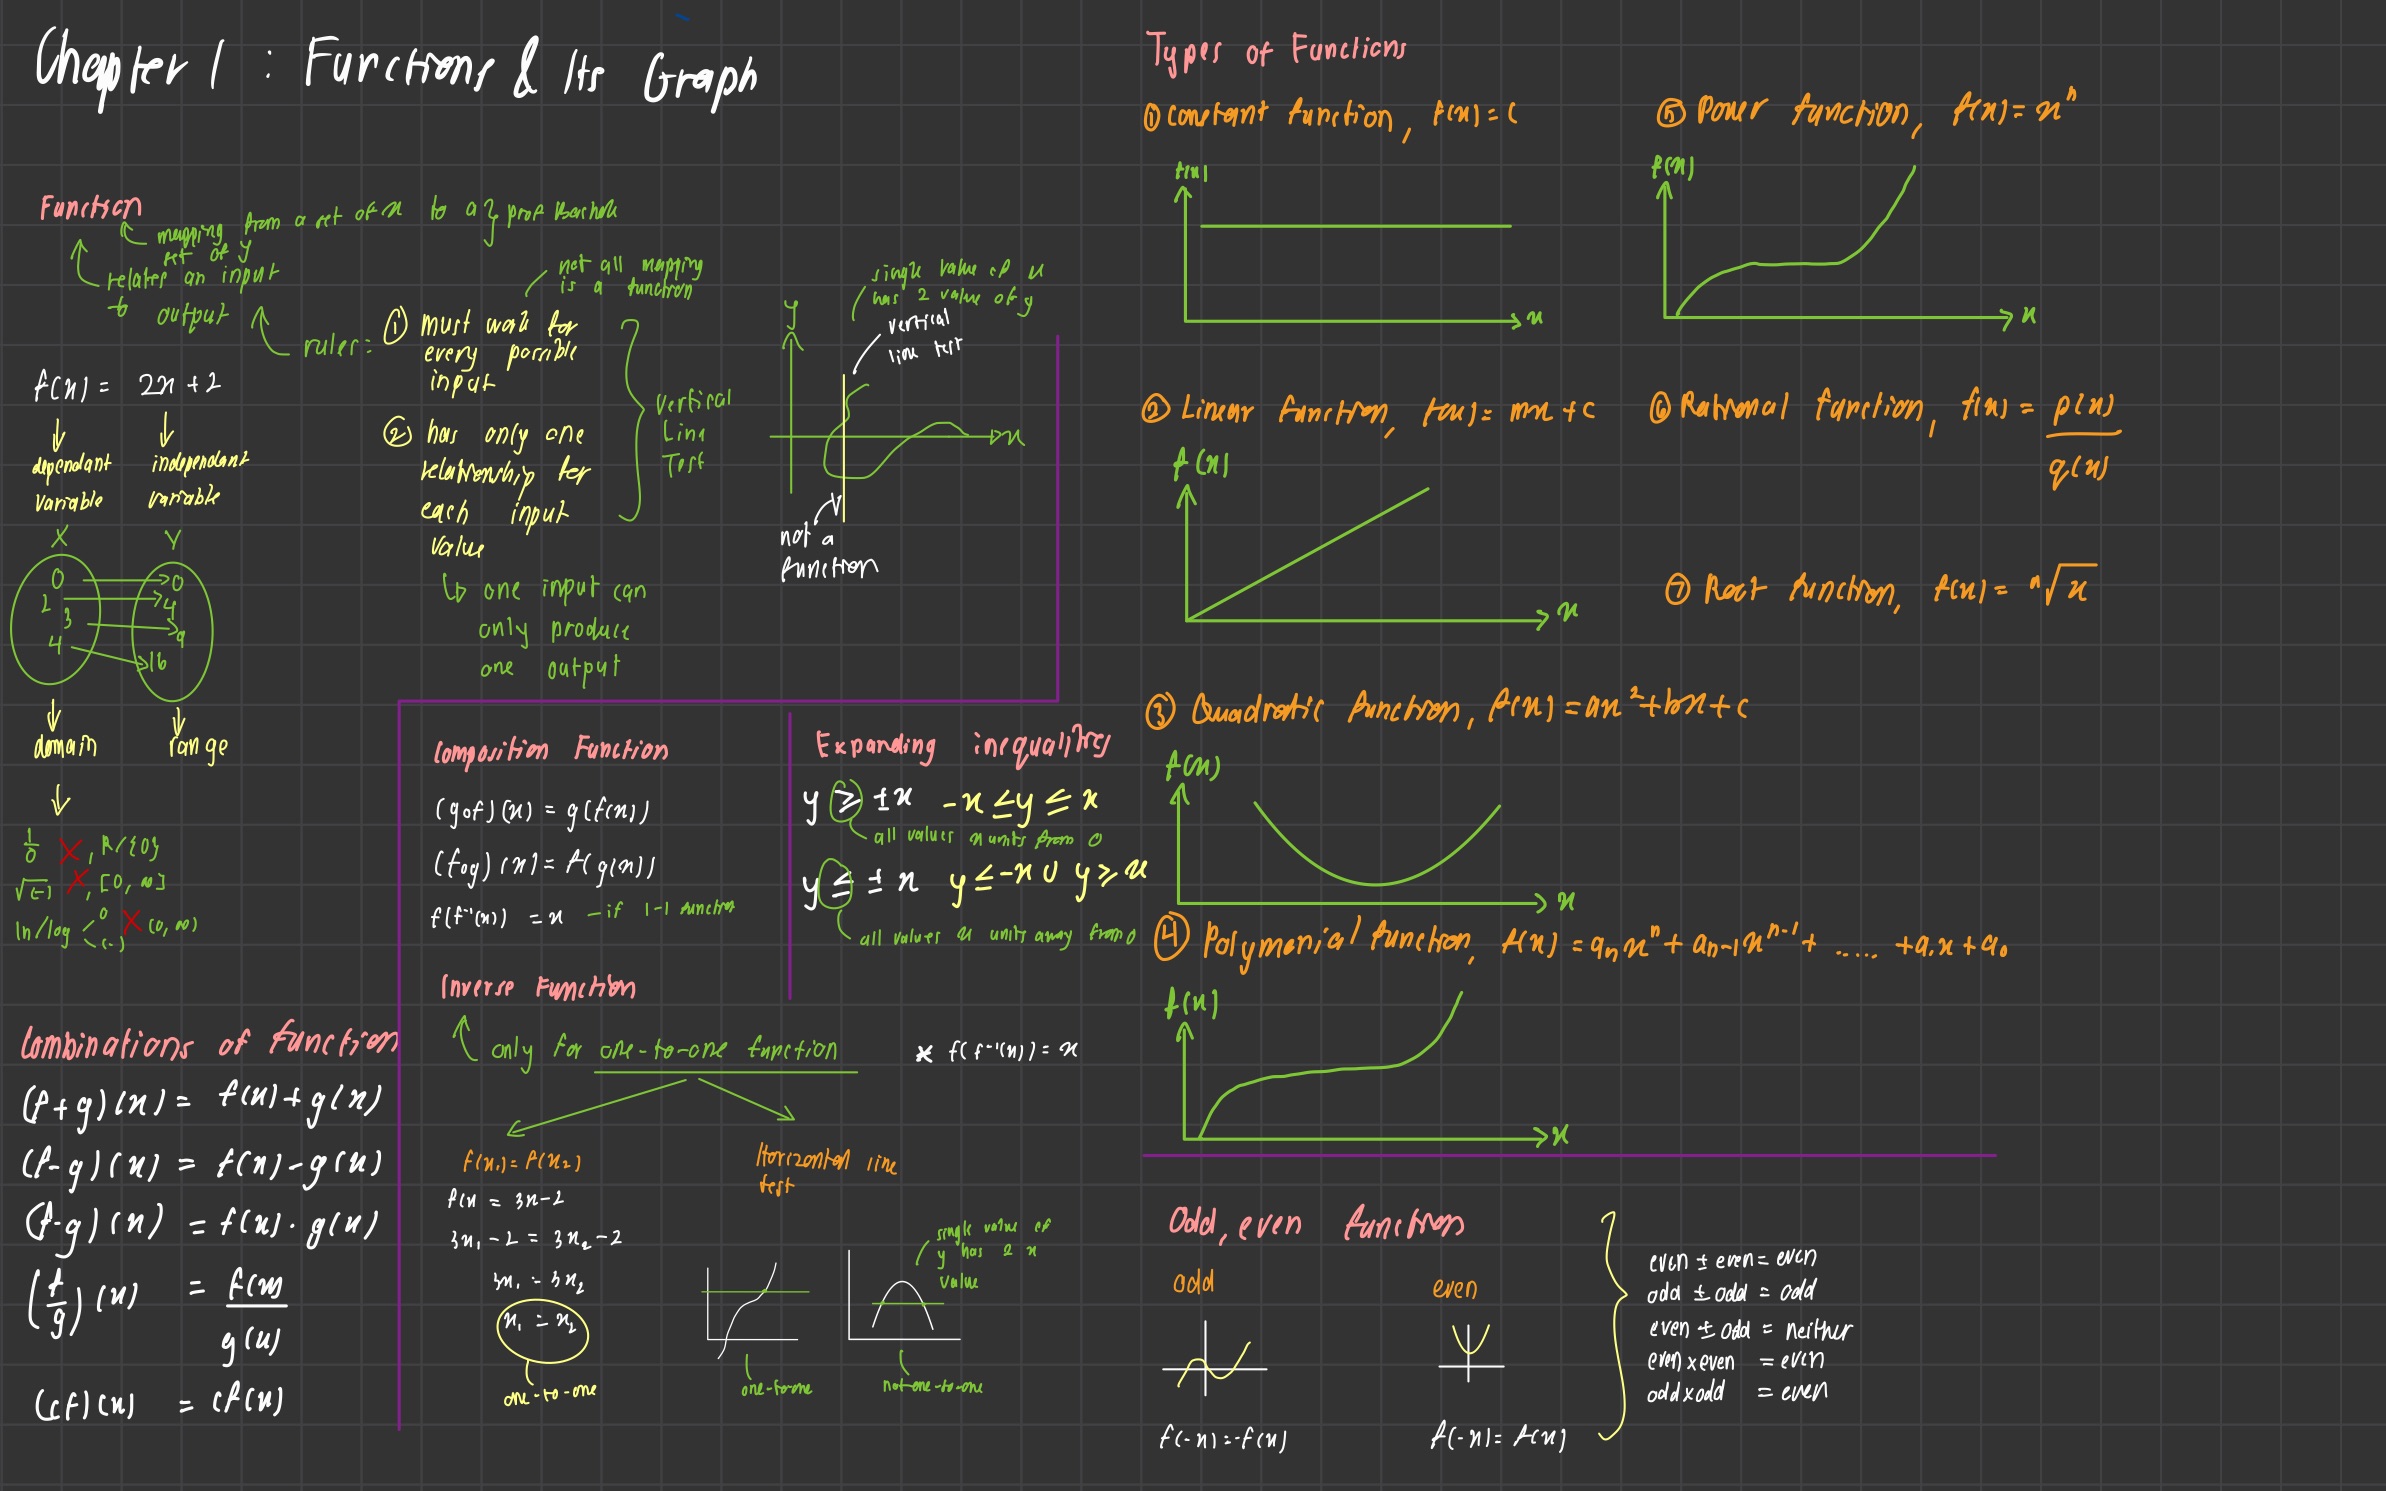 Chapter 1 : Functions & Its Graph
Function
mapping from a set of x to a
set of y
relates an input
to output
rules:
not all mapping
is a function
① must work for
every possible
input
② has only one
relationship for
each input
value
↳ one input can
only produce
one output
Vertical
Line
Test
single value of x
has 2 value of y
vertical
line test
y
x
not a
function
f(x) = 2x + 2
dependant
variable
independant
variable
X
Y
0
2
3
4
0
4
9
16
domain
range
1/0 X, R/{0}
√(-) X, [0, ∞]
ln/log < 0 (-) X (0, ∞)
Combinations of function
(f+g)(x) = f(x) + g(x)
(f-g)(x) = f(x) - g(x)
(f·g)(x) = f(x) · g(x)
(f/g)(x) = f(x)/g(x)
(cf)(x) = cf(x)
Composition Function
(gof)(x) = g(f(x))
(fog)(x) = f(g(x))
f(f⁻¹(x)) = x - if 1-1 function
Expanding inequalities
y ≥ ±x -x ≤ y ≤ x
all values x units from 0
y ≤ ± x y ≤ -x ∪ y ≥ x
all values x units away from 0
Inverse Function
only for one-to-one function
* f(f⁻¹(x)) = x
f(x₁) = f(x₂)
f(x = 3x-2
3x₁ - 2 = 3x₂ - 2
3x₁ = 3x₂
x₁ = x₂
one-to-one
Horizontal line
test
single value of
y has 2 x
value
one-to-one
not one-to-one
Types of Functions
① Constant function, f(x) = c
f(x)
x
② Linear function, f(x) = mx + c
f(x)
x
③ Quadratic function, f(x) = ax² + bx + c
f(x)
x
④ Polymonial function, f(x) = aₙxⁿ + aₙ₋₁xⁿ⁻¹ + ..... + a₁x + a₀
f(x)
x
⑤ Power function, f(x) = xⁿ
f(x)
x
⑥ Rational function, f(x) = p(x)/q(x)
⑦ Root function, f(x) = ⁿ√x
Odd, even function
odd
even
f(-x) = -f(x)
f(-x) = f(x)
even ± even = even
odd ± odd = odd
even ± odd = neither
even x even = even
odd x odd = even